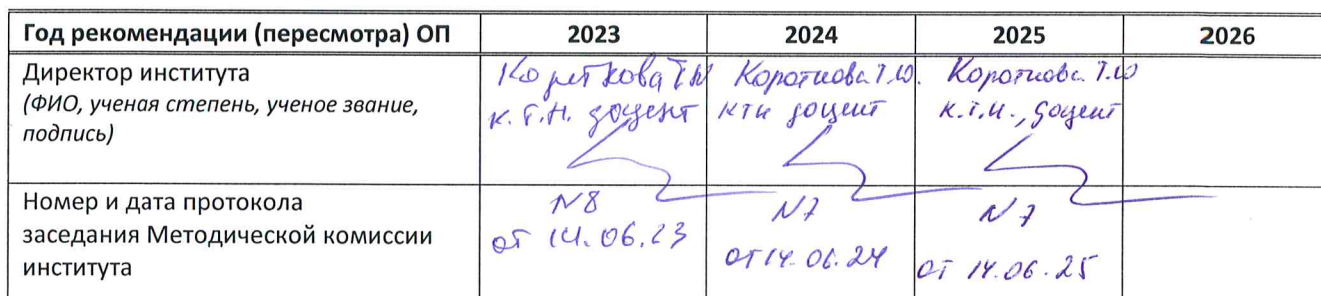 Год рекомендации (пересмотра) ОП 2023 2024 2025 2026
Директор института
(ФИО, ученая степень, ученое звание,
подпись)
Короткова Т.И. Короткова Т.Ю. Короткова Т.Ю
к.т.н. доцент ктн доцент к.т.н., доцент
Номер и дата протокола
заседания Методической комиссии
института
N8 N7 N7
от 14.06.23 от 14.06.24 от 14.06.25